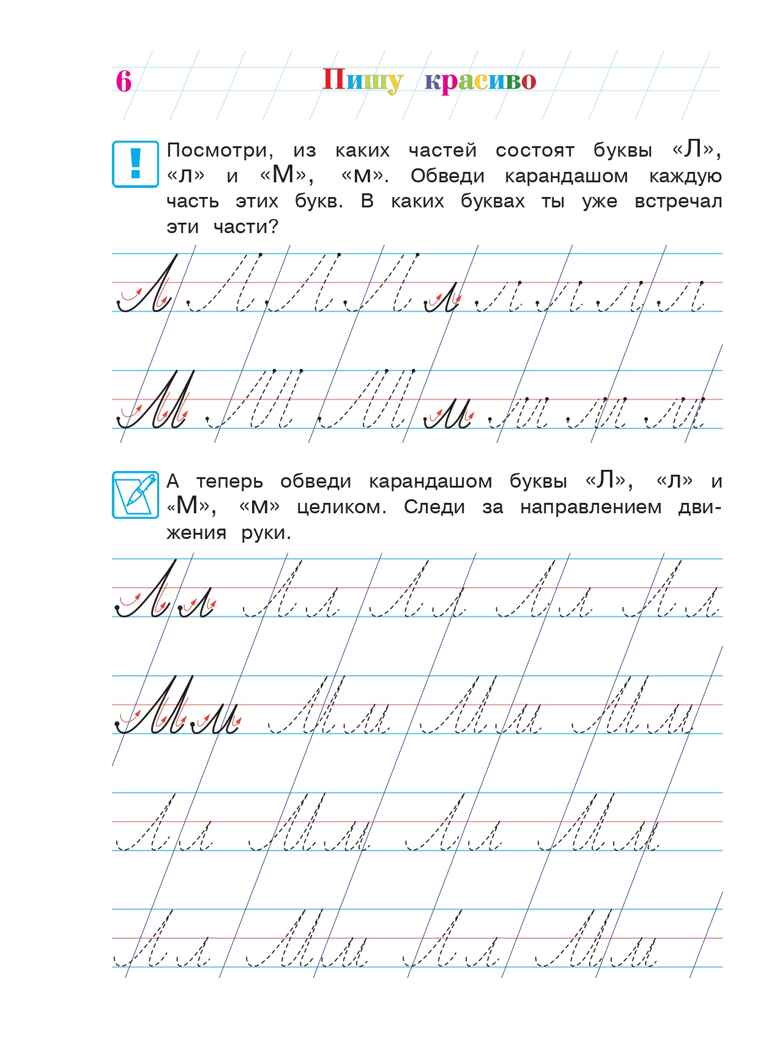 6 Пишу красиво
! Посмотри, из каких частей состоят буквы «Л»,
«л» и «М», «м». Обведи карандашом каждую
часть этих букв. В каких буквах ты уже встречал
эти части?
Л Л Л Л л л л л л
М М М м м м м
А теперь обведи карандашом буквы «Л», «л» и
«М», «м» целиком. Следи за направлением дви-
жения руки.
Лл Лл Лл Лл Лл
Мм Мм Мм Мм
Лл Мм Лл Мм
Лл Мм Лл Мм